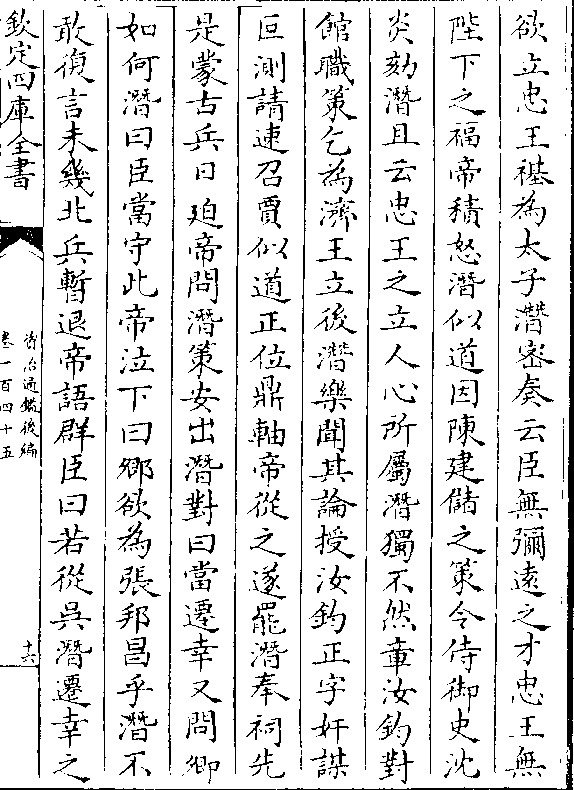 欲立忠王禥為太子潛密奏云臣無彌遠之才忠王無
陛下之福帝積怒潛似道因陳建儲之策令侍御史沈
炎劾潛且云忠王之立人心所屬潛獨不然章汝鈞對
館職策乞為濟王立後潛樂聞其論授汝鈞正字奸謀
叵測請速召賈似道正位鼎軸帝從之遂罷潛奉祠先
是蒙古兵日廹帝問潛策安出潛對曰當遷幸又問卿
如何潛曰臣當守此帝泣下曰卿欲為張邦昌乎潛不
敢復言未幾北兵暫退帝語群臣曰若從吳潛遷幸之
欽定四庫全書
資治通鑑後編
卷一百四十五
十六